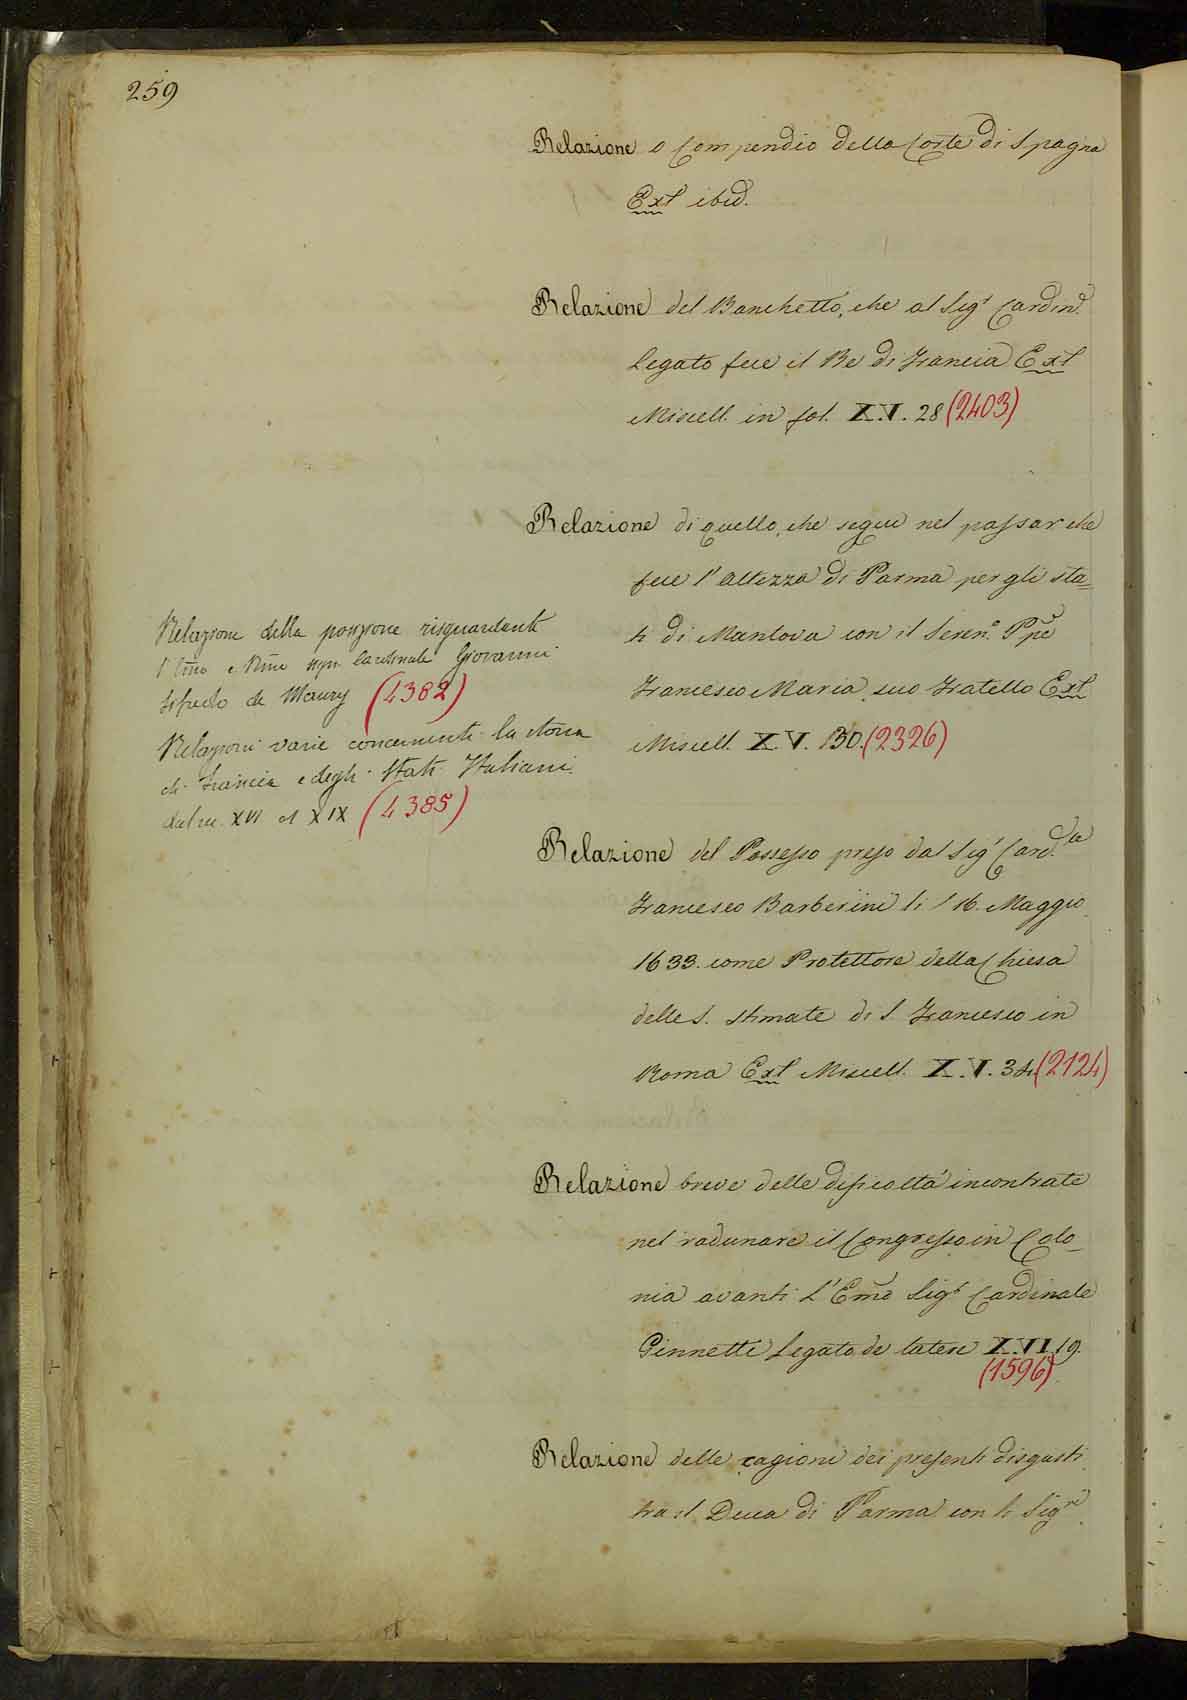 259
Relazione o Compendio della Corte di Spagna
Ext ibid.
Relazione del Banchetto, che al Sigr Cardin.e
Legato fece il Re di Francia Ext
Miscell. in fol. X.V. 28 (2403)
Relazione di quello, che seguì nel passar che
fece l'altezza di Parma per gli sta=
ti di Mantova con il Seren.o Ppe
Francesco Maria suo Fratello Ext
Miscell. X.V. 130. (2326)
Relazione della posizione risguardante
l'Emo e Rmo sign. Cardinale Giovanni
Sifredo de Maury (4382)
Relazioni varie concernenti la storia
di Francia e degli Stati Italiani
dal sec. XVI al XIX (4385)
Relazione del Possesso preso dal Sigr Card.le
Francesco Barberini li 16. Maggio
1633. come Protettore della Chiesa
delle S. Stimate di S. Francesco in
Roma Ext Miscell. X.V. 34. (2124)
Relazione breve delle difficoltá incontrate
nel radunare il Congresso in Colo=
nia avanti L'Emo Sigr Cardinale
Ginnetti Legato de latere X.VI. 19.
(1596)
Relazione delle cagioni dei presenti disgusti
tra il Duca di Parma con li Sigri